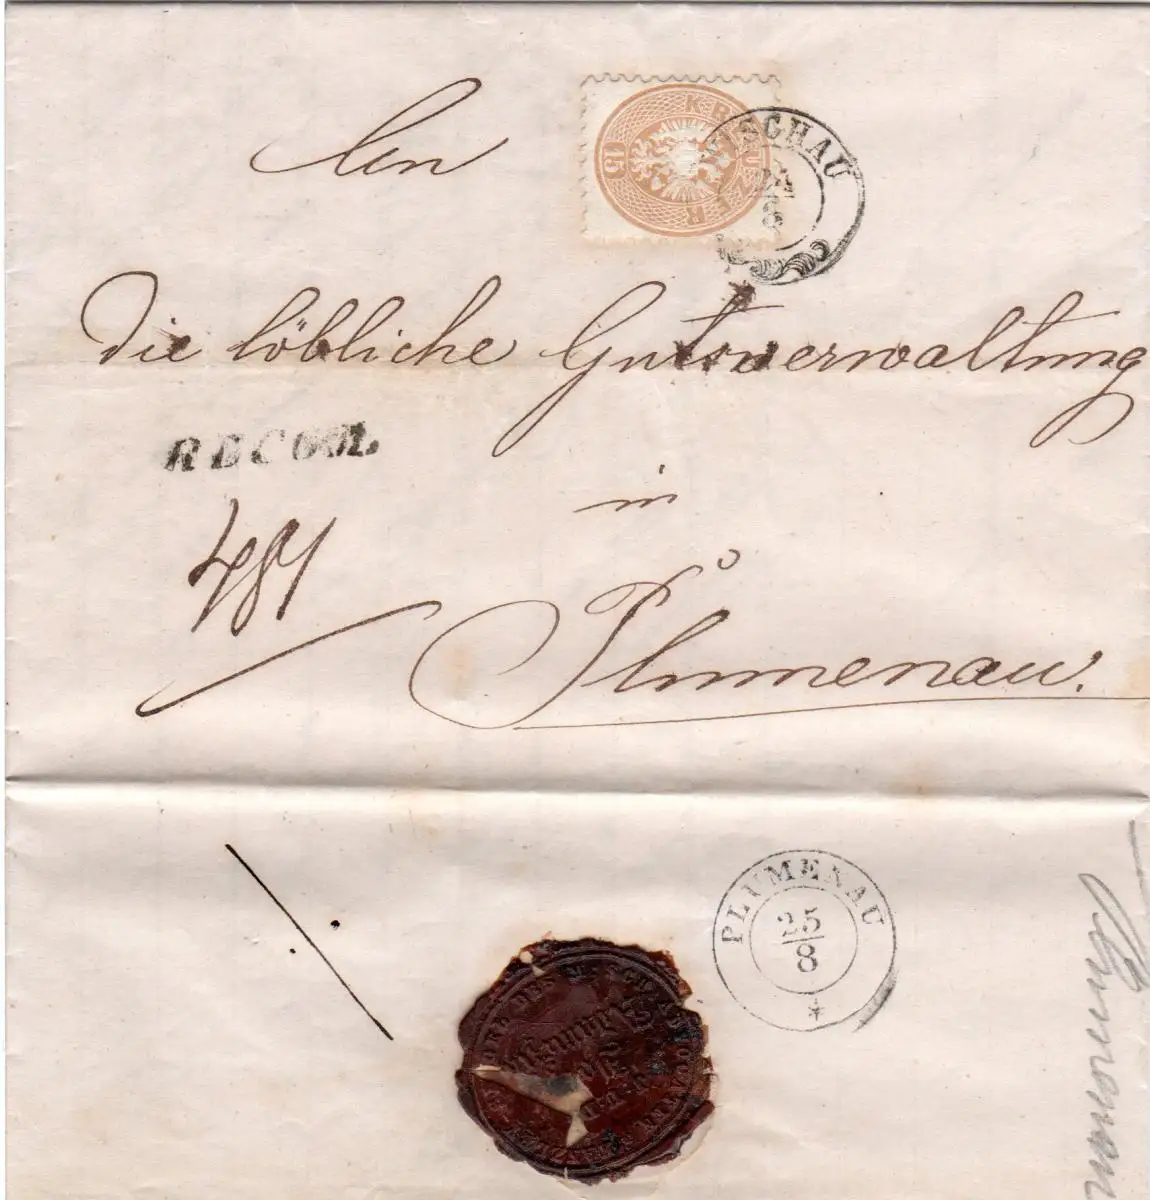 An
15 KREUZER
SCHAU
24
8
Die löbliche Gutsverwaltung
RECOM.
in
481
Plumenau.
PLUMENAU
25
8